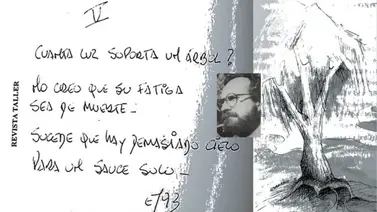 V
CUANTA LUZ SOPORTA UN ÁRBOL?
NO CREO QUE SU FATIGA
SEA DE MUERTE—
SUCEDE QUE HAY DEMASIADO CIELO
PARA UN SAUCE SOLO—
E/93
REVISTA TALLER